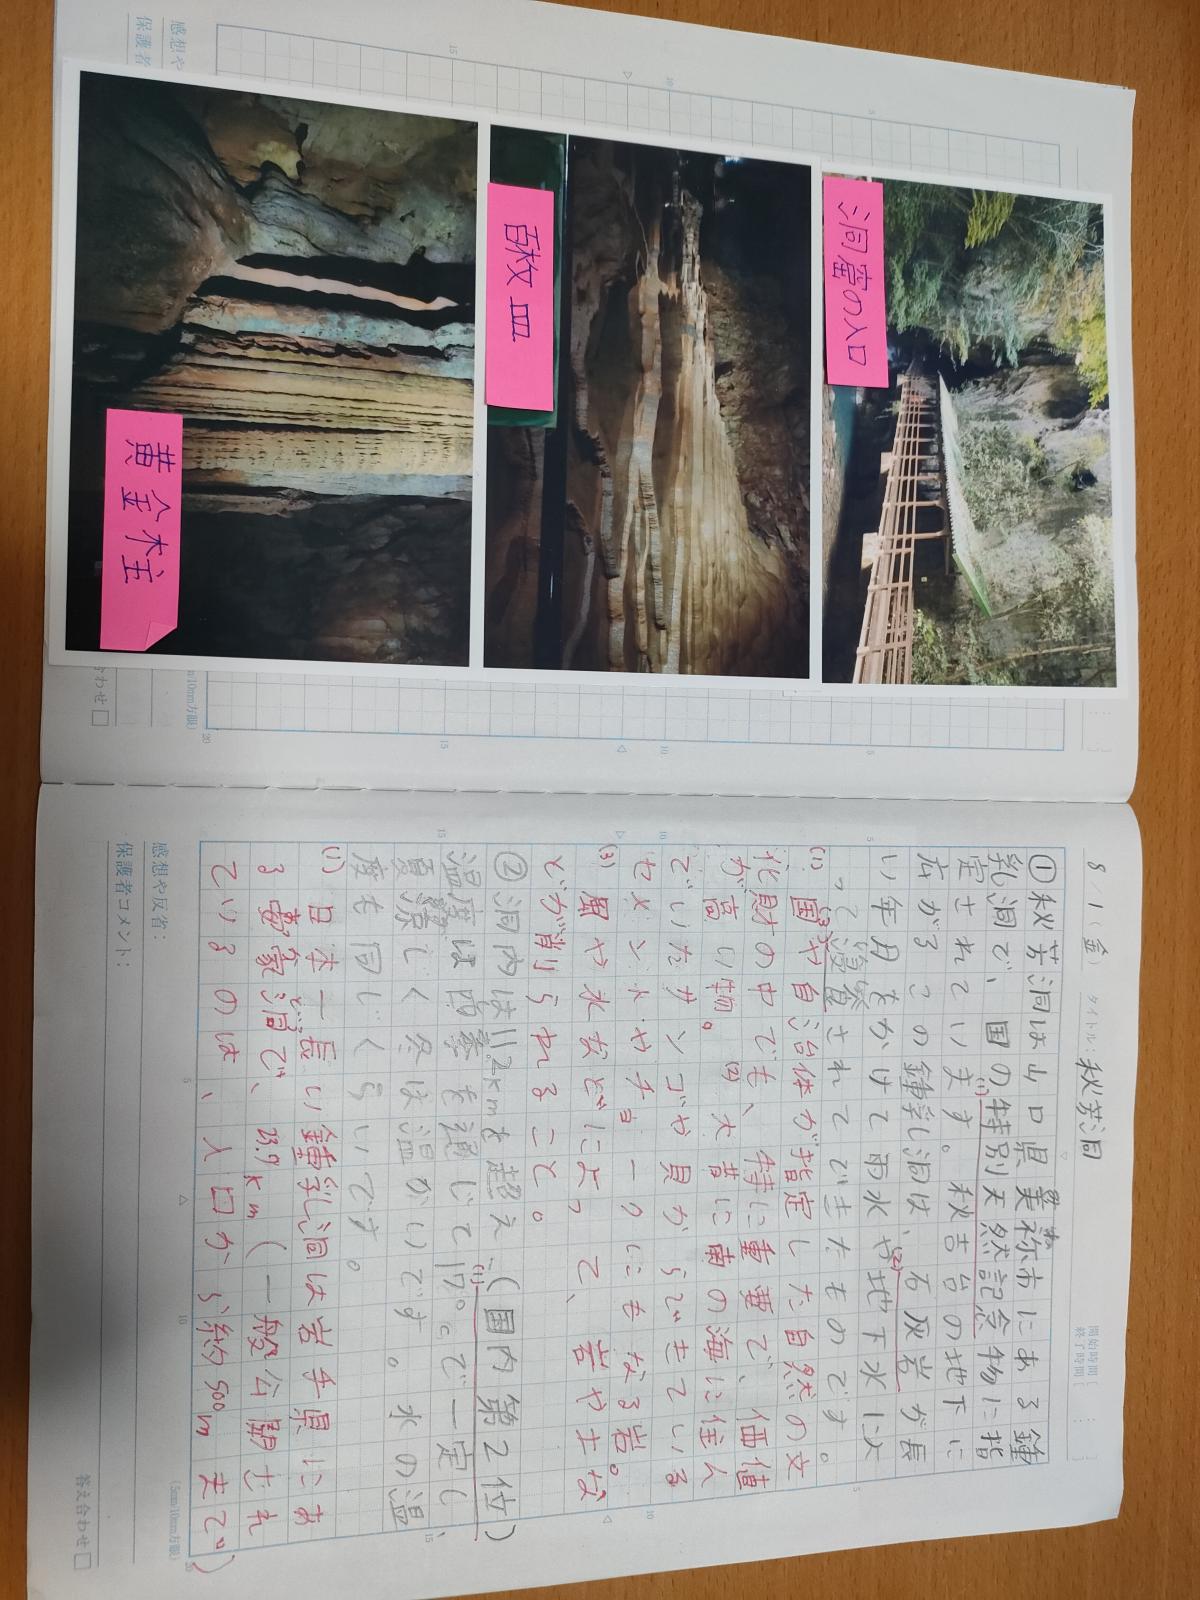 感想や
保護者
洞窟の入口
百枚皿
黄金柱
8/1(金)
タイトル:秋芳洞
開始時間[ : ]
終了時間[ : ]
①秋芳洞は山口県美祢市にある鍾
乳洞で、国の特別天然記念物に指
定されています。秋吉台の地下に
広がるこの鍾乳洞は、石灰岩が長
い年月をかけて雨水や地下水によ
って浸食されてできたものです。
(1)国や自治体が指定した自然の文
化財の中でも、特に重要で、価値
が高い物。(2)大昔に南の海に住ん
でいたサンゴや貝からできている
セメントやチョークにもなる岩。
(3)風や水などによって、岩や土な
どが削られること。
②洞内は11.2kmを超え、(国内第2位)
温度は四季を通じて17℃で一定し、
夏涼しく冬は温かいです。水の温
度も同じくらいです。
(1)日本一長い鍾乳洞は岩手県にあ
る安家洞で、23.7km(一般公開され
ているのは、入口から約500mまで)
感想や反省:
保護者コメント:
(5mm/10mm方眼)
答え合わせ□